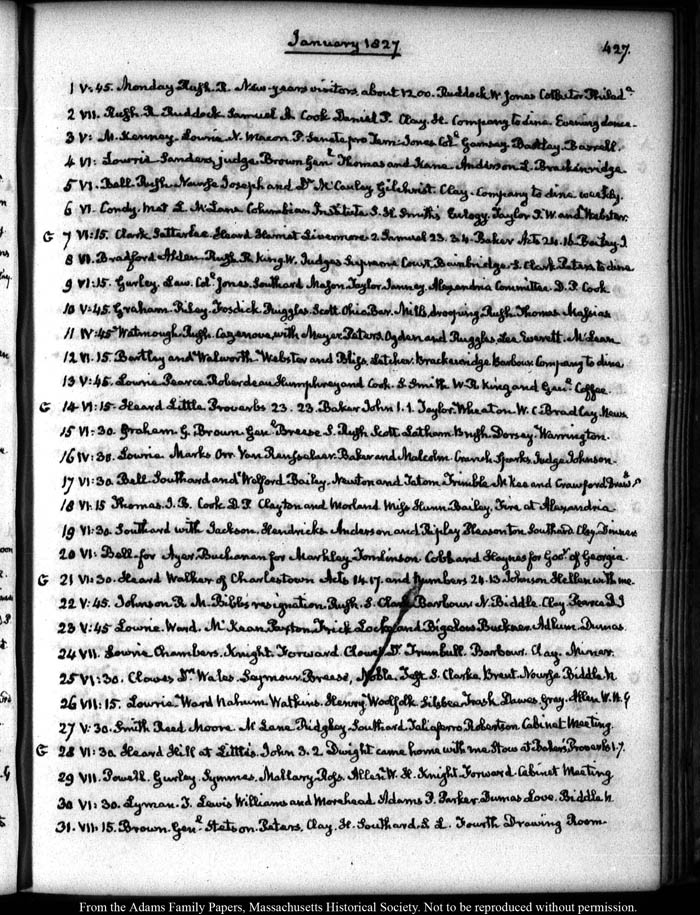 January 1827
427.
1 V:45. Monday. Rush. R. New-years visitors about 1200. Ruddock. W. Jones Collector Philad.a
2 VII. Rush. R. Ruddock. Samuel A. Cook Daniel P. Clay. H. Company to dine. Evening dance.
3 V: M. Kenney. Lowrie. N. Macon. P. Senate pro Tem: Jones Col.l Barrell.
4 VI: Lowrie. Sanders, judge. Brown Gen.l Thomas and Kane Anderson L. Breckinridge
5 VI. Ball. Rush. Nourse Joseph and D.r McCauley Gilchrist. Clay. Company to dine weekly.
6 VI. Condy. Met L. McLane Columbian Institute. S. H. Smith's Eulogy. Taylor J. W. and Webster.
G 7 VI:15. Clark. Satterlee Heard Harriet Livermore 2 Samuel 23. 3.4. Baker Acts 24. 16. Bailey J
8 VI. Bradford Alden. Rush. R. King. W. Judges Supreme Court, Bainbridge. S. Clark. Peters to dine
9 VI:15. Gurley. Law. Col.l Jones. Southard Mason Taylor. Janney. Alexandria Committee. D. P. Cook
10 V:45. Graham. Riley. Fosdick Ruggles. Scott. Ohio Bar. Mills, drooping Rush. Thomas Massias
11 IV:45. Watmough. Rush. Cazenove, with Meyer. Peters. Ogden and Ruggles. Lee Everett. McLean
12 VI:15. Bartley and Walworth. Webster and Bliss. Letcher. Breckenridge Barbour. Company to dine
13 V:45. Lowrie Pearce. Roberdeau Humphrey and Cook. S. Smith W. R. King and Gen.l Coffee.
G 14 VI:15. Heard Little Proverbs 23. 23. Baker John 1. 1. Taylor. Wheaton. W. C. Bradley News
15 VI:30. Graham G. Brown Gen.l Breese S. Rush Scott. Latham Bush. Dorsey Warrington.
16 IV:30. Lowrie Marks Orr Van Rensselaer. Baker and Malcolm. Cranch Sparks. Judge Johnson.
17 VI:30. Ball. Southard and Wolford Bailey. Newton and Tatem. Trimble McKee and Crawford
18 VI:15 Thomas. J. B. Cook. D. P. Clayton and Morland Miss Hunn. Bailey. Fire at Alexandria
19 VI:30. Southard with Jackson. Hendricks Anderson and Ripley Pleasonton Southard. Clay. Dinner
20 VI: Ball. for Ayer. Buchanan for Markley Tomlinson Cobb and Haynes for Gov.r of Georgia.
G 21 VI:30. Heard Walker of Charlestown Acts 14. 17. and Numbers 24. 13. Johnson Hellen with me
22 V:45. Johnson R. M. Bibb's resignation. Rush. S. Clark Barbour N. Biddle. Clay. Pearce D J
23 V:45 Lowrie. Ward. McKean. Paxton Frick Locke and Bigelow Buckner. Adlum. Dumas.
24 VII. Lowrie Chambers. Knight. Forward Clowes D.r Trumbull. Barbour. Clay. Minor.
25 VI:30. Clowes D.r Wales. Seymour Breese, Noble. Taff S. Clarke. Brent Nourse Biddle. N
26 VII:15. Lowrie. Ward Nahum Watkins. Henry Woolfolk Silsbee Trask. Dawes. Gray. Allen W. H. G
27 V:30. Smith Reed Moore. McLane Ridgley Southard Taliaferro Robertson Cabinet Meeting
G 28 VI:30. Heard Hill at Little's. John 3. 2. Dwight came home with me Stow at Baker's Proverbs 1. 7.
29 VII. Powell. Gurley Symmes. Mallary Ross. Allen W. H. Knight. Forward. Cabinet Meeting
30 VI:30. Lyman. J. Lewis Williams and Morehead Adams P. Parker. Dumas Love. Biddle N
31. VII:15. Brown. Gen.l Stetson. Peters. Clay. H. Southard. S. L. Fourth Drawing Room.
From the Adams Family Papers, Massachusetts Historical Society. Not to be reproduced without permission.